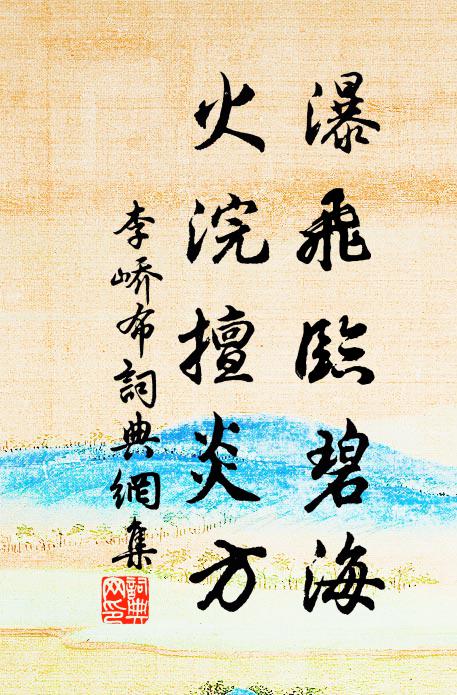 瀑飛臨碧海
火浣擅炎方
李嶠布詞典網集
詞典
網印